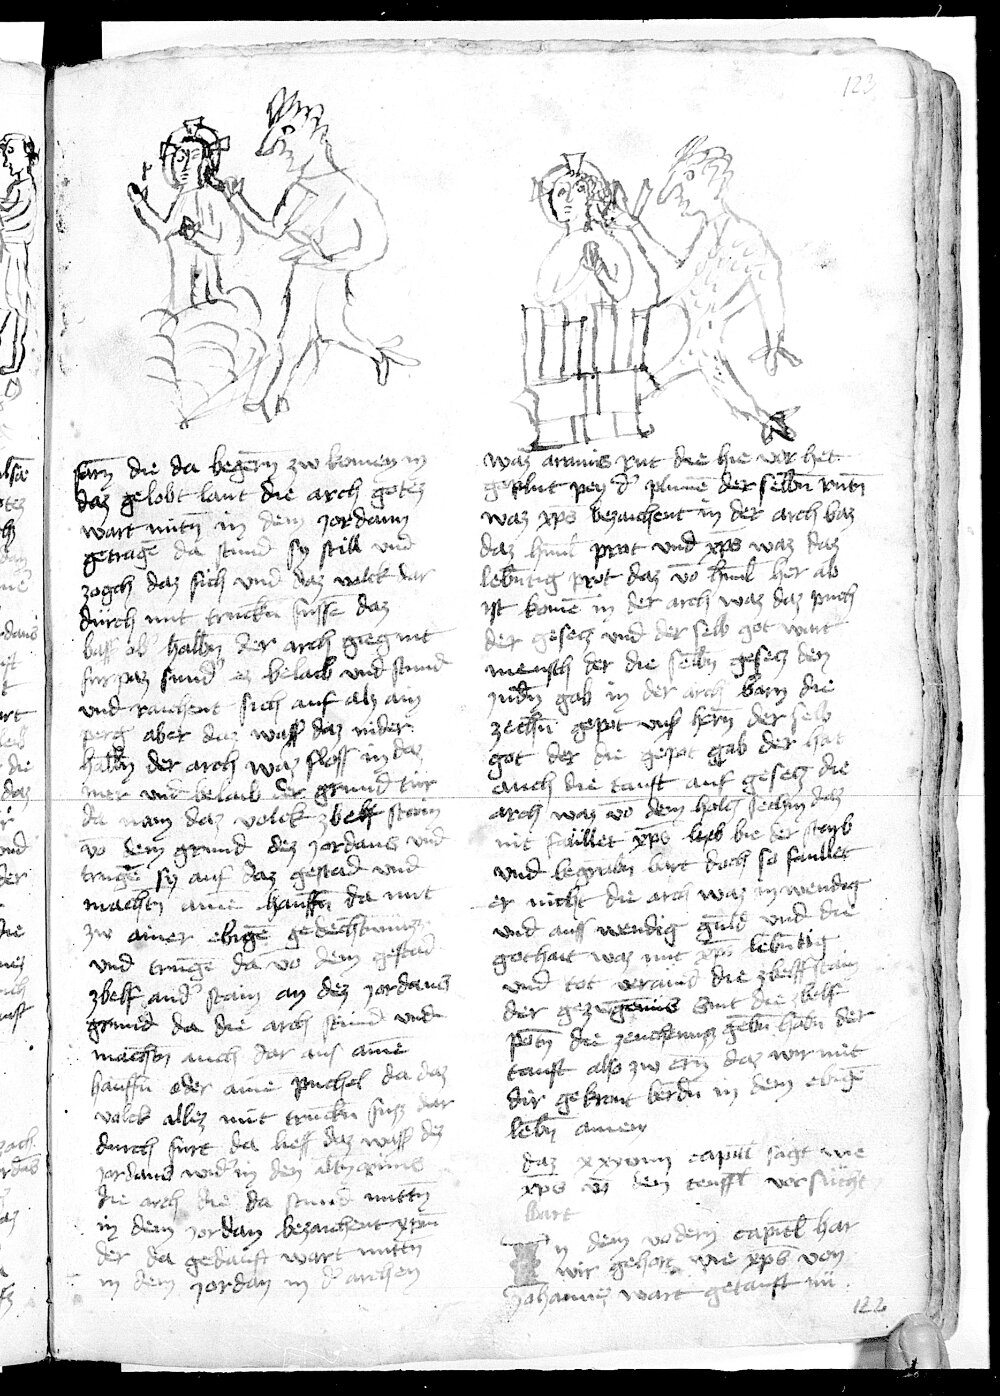 123
farn die da begern zw komen in
daz gelobt lant die arch gotez
wart mitn in dem jordann
getragē da stund sy still und
zogch daz sich und daz volck dar
durch mit truckn fussē daz
halbn der arch gieg nit
fur paz sund' ez belaib und stund
und raichent sich auf alz ain
perg aber daz wass' daz nider
halbn der arch waz floss in daz
mer und belaib der grund dur
da nam daz volck zbelf stain
vō dem grund dez jordans und
trugē sy auf daz gestad und
machtn ainē hauffn da mit
zw ainer ebigē gedechtnuzz
und trugē da vō dem gestad
zbelf and' stain an dez jordans
grund da die arch stund und
machtn auch dar aus ainē
hauffn oder ainē puchel da daz
volck allez mit truckn fusz dar
durch furt da lieff daz wass' dez
jordans wid' in den
die arch die da stund mittn
in dem jordan bezaichent xpm
der da gedauft wart mittn
in dem jordan in d' archen
waz araonis rut die hie vor het
geplut pey d' plumē der selbn rutn
waz xps bezaichent in der arch baz
daz himl prot und xps waz daz
lebntig prot daz vō himl her ab
ist komē in der arch waz daz puch
der gesecz und der selb got wart
mensch der die selbn gesecz den
judn gab in der arch barn die
zechn gepot uns hern der selb
got der die gepot gab der hat
auch die tauft auf gesecz die
arch waz vō dem holcz sechim daz
nit faullet xps leib bie der starb
und begrabn bart doch so faullet
er nicht die arch waz inwendig
und auss wendig guld und die
gothait waz mit xpi lebntig
und tot veraint die zbelff stain
der gezugenus sint die zbelf
potn die zeucknuz gebn habn der
tauft also zw ern daz wir mit
dir gekront berdn in dem ebigē
lebn amen
daz capitl sagt wie
xps vō dem teuffl versucht
bart
In dem vodern capitl hat
wir gehort wie xps von
Johannes wart getauft nu
122